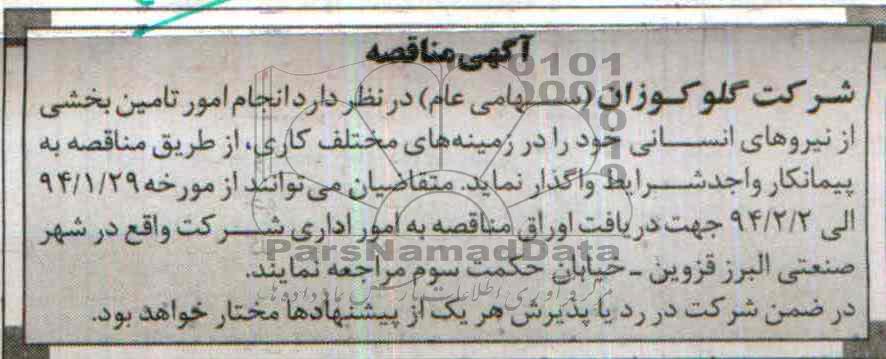 آگهی مناقصه
شرکت گلوکوزان (سهامی عام) در نظر دارد انجام امور تامین بخشی
از نیروهای انسانی خود را در زمینه‌های مختلف کاری، از طریق مناقصه به
پیمانکار واجدشرایط واگذار نماید. متقاضیان می‌توانند از مورخه ۹۴/۱/۲۹
الی ۹۴/۲/۲ جهت دریافت اوراق مناقصه به امور اداری شرکت واقع در شهر
ParsNamadData
صنعتی البرز قزوین ـ خیابان حکمت سوم مراجعه نمایند.
در ضمن شرکت در رد یا پذیرش هر یک از پیشنهادها مختار خواهد بود.